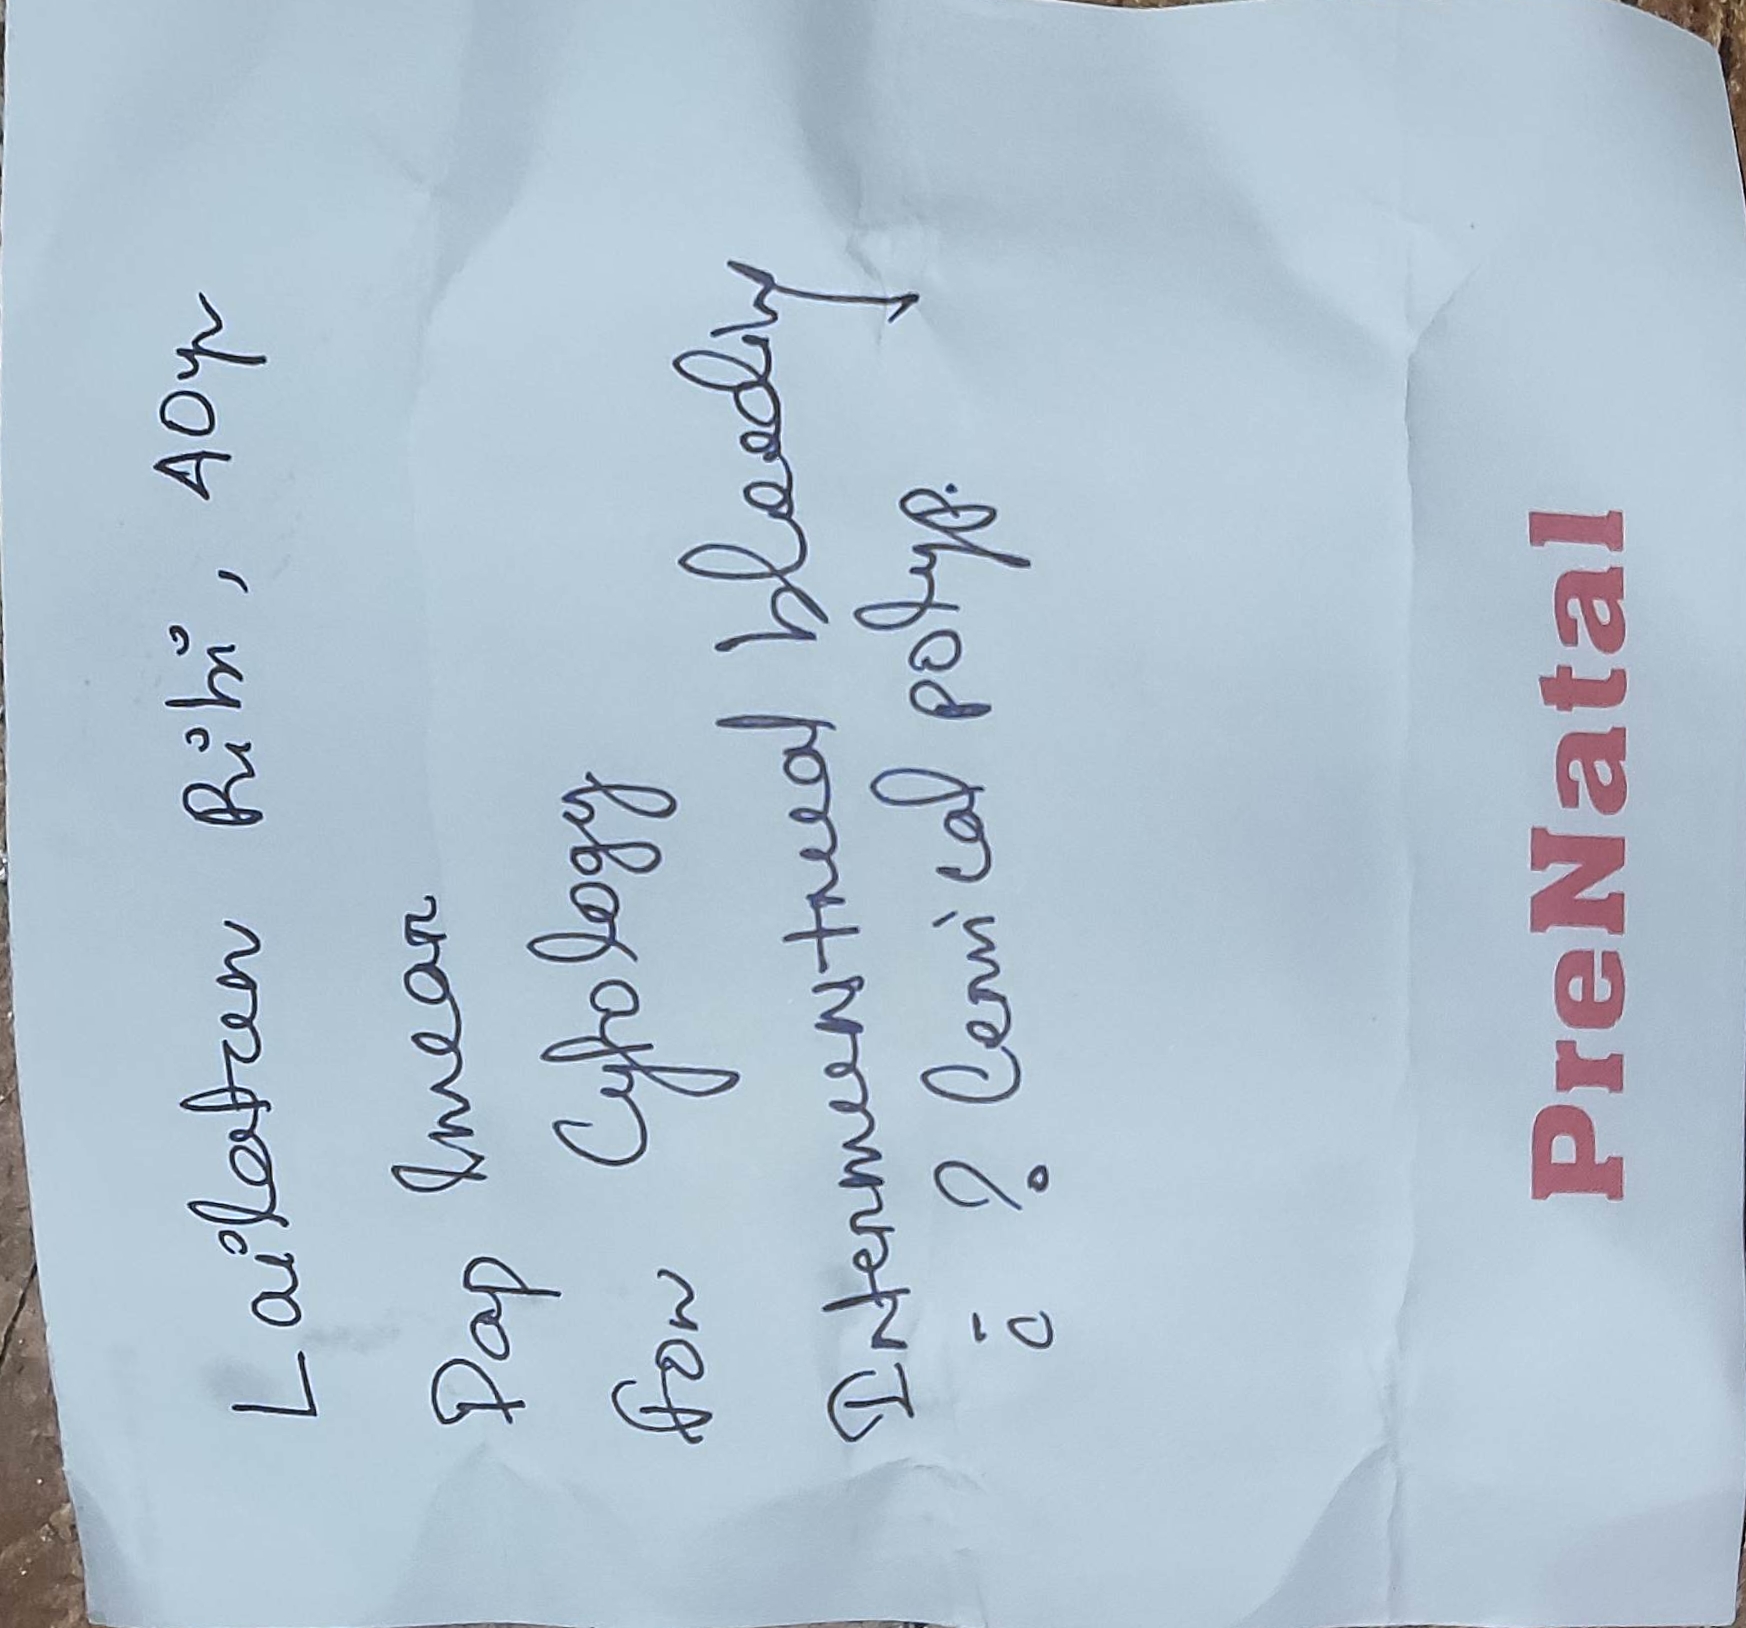 Bibi, 40yr
Pap smear
for Cytology
Intermenstrual bleeding
c̄ ? Cervical polyp.
PreNatal